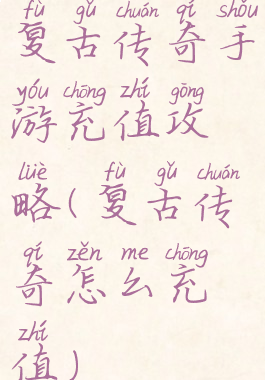 fù gǔ chuán qí shǒu
复古传奇手
yóu chōng zhí gōng
游充值攻
lüè fù gǔ chuán
略(复古传
qí zěn me chōng
奇怎么充
zhí
值)